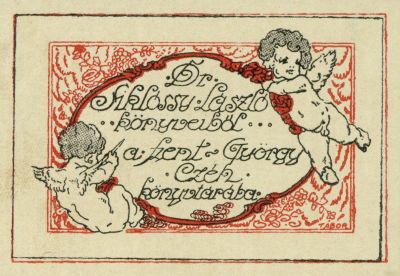 Dr.
Siklóssy László
könyveiből...
a Szent-György
Czéh
könyvtárába.
TÁBOR.